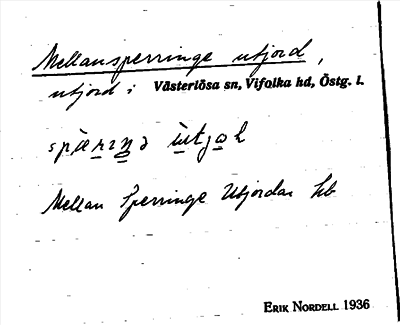 Mellansperringe utjord,
utjord i Västerlösa sn, Vifolka hd, Östg. l.
Mellan Sperringe Utjordar
ERIK NORDELL 1936